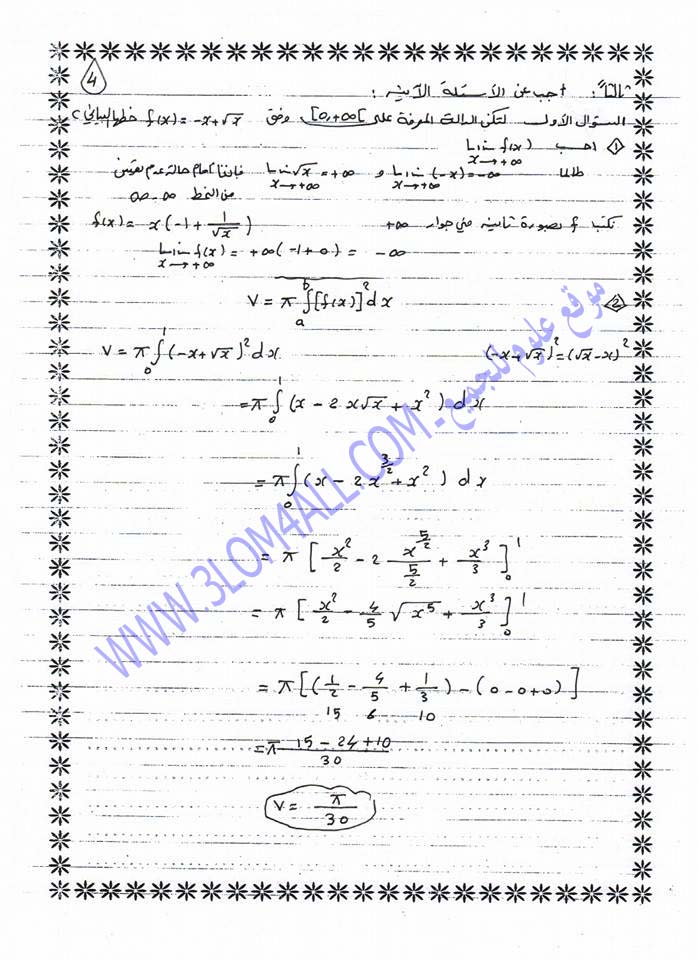 4
ثالثاً: أجب عن الأسئلة الآتية:
السؤال الأول لتكن الدالة المعرفة على [0,+∞[ وفق f(x)=-x+√x خطها البياني C
① احسب Lim f(x) x→+∞
طالما Lim (-x)=-∞ x→+∞ و Lim √x=+∞ x→+∞ فإننا أمام حالة عدم تعيين
من النمط ∞-∞
نكتب f بصورة ثانية في جوار +∞ f(x)= x(-1+1/√x)
Lim f(x) = +∞(-1+0) = -∞ x→+∞
② V = π ∫_a^b [f(x)]² dx
V = π ∫_0^1 (-x+√x)² dx (-x+√x)²=(√x-x)²
= π ∫_0^1 (x - 2x√x + x²) dx
= π ∫_0^1 (x - 2x^(3/2) + x²) dx
= π [ x²/2 - 2 x^(5/2)/(5/2) + x³/3 ]_0^1
= π [ x²/2 - 4/5 √x⁵ + x³/3 ]_0^1
= π [(1/2 - 4/5 + 1/3) - (0-0+0)]
15 6 10
= π (15 - 24 + 10)/30
V = π/30
WWW.3LOM4ALL.COM - موقع علوم للجميع